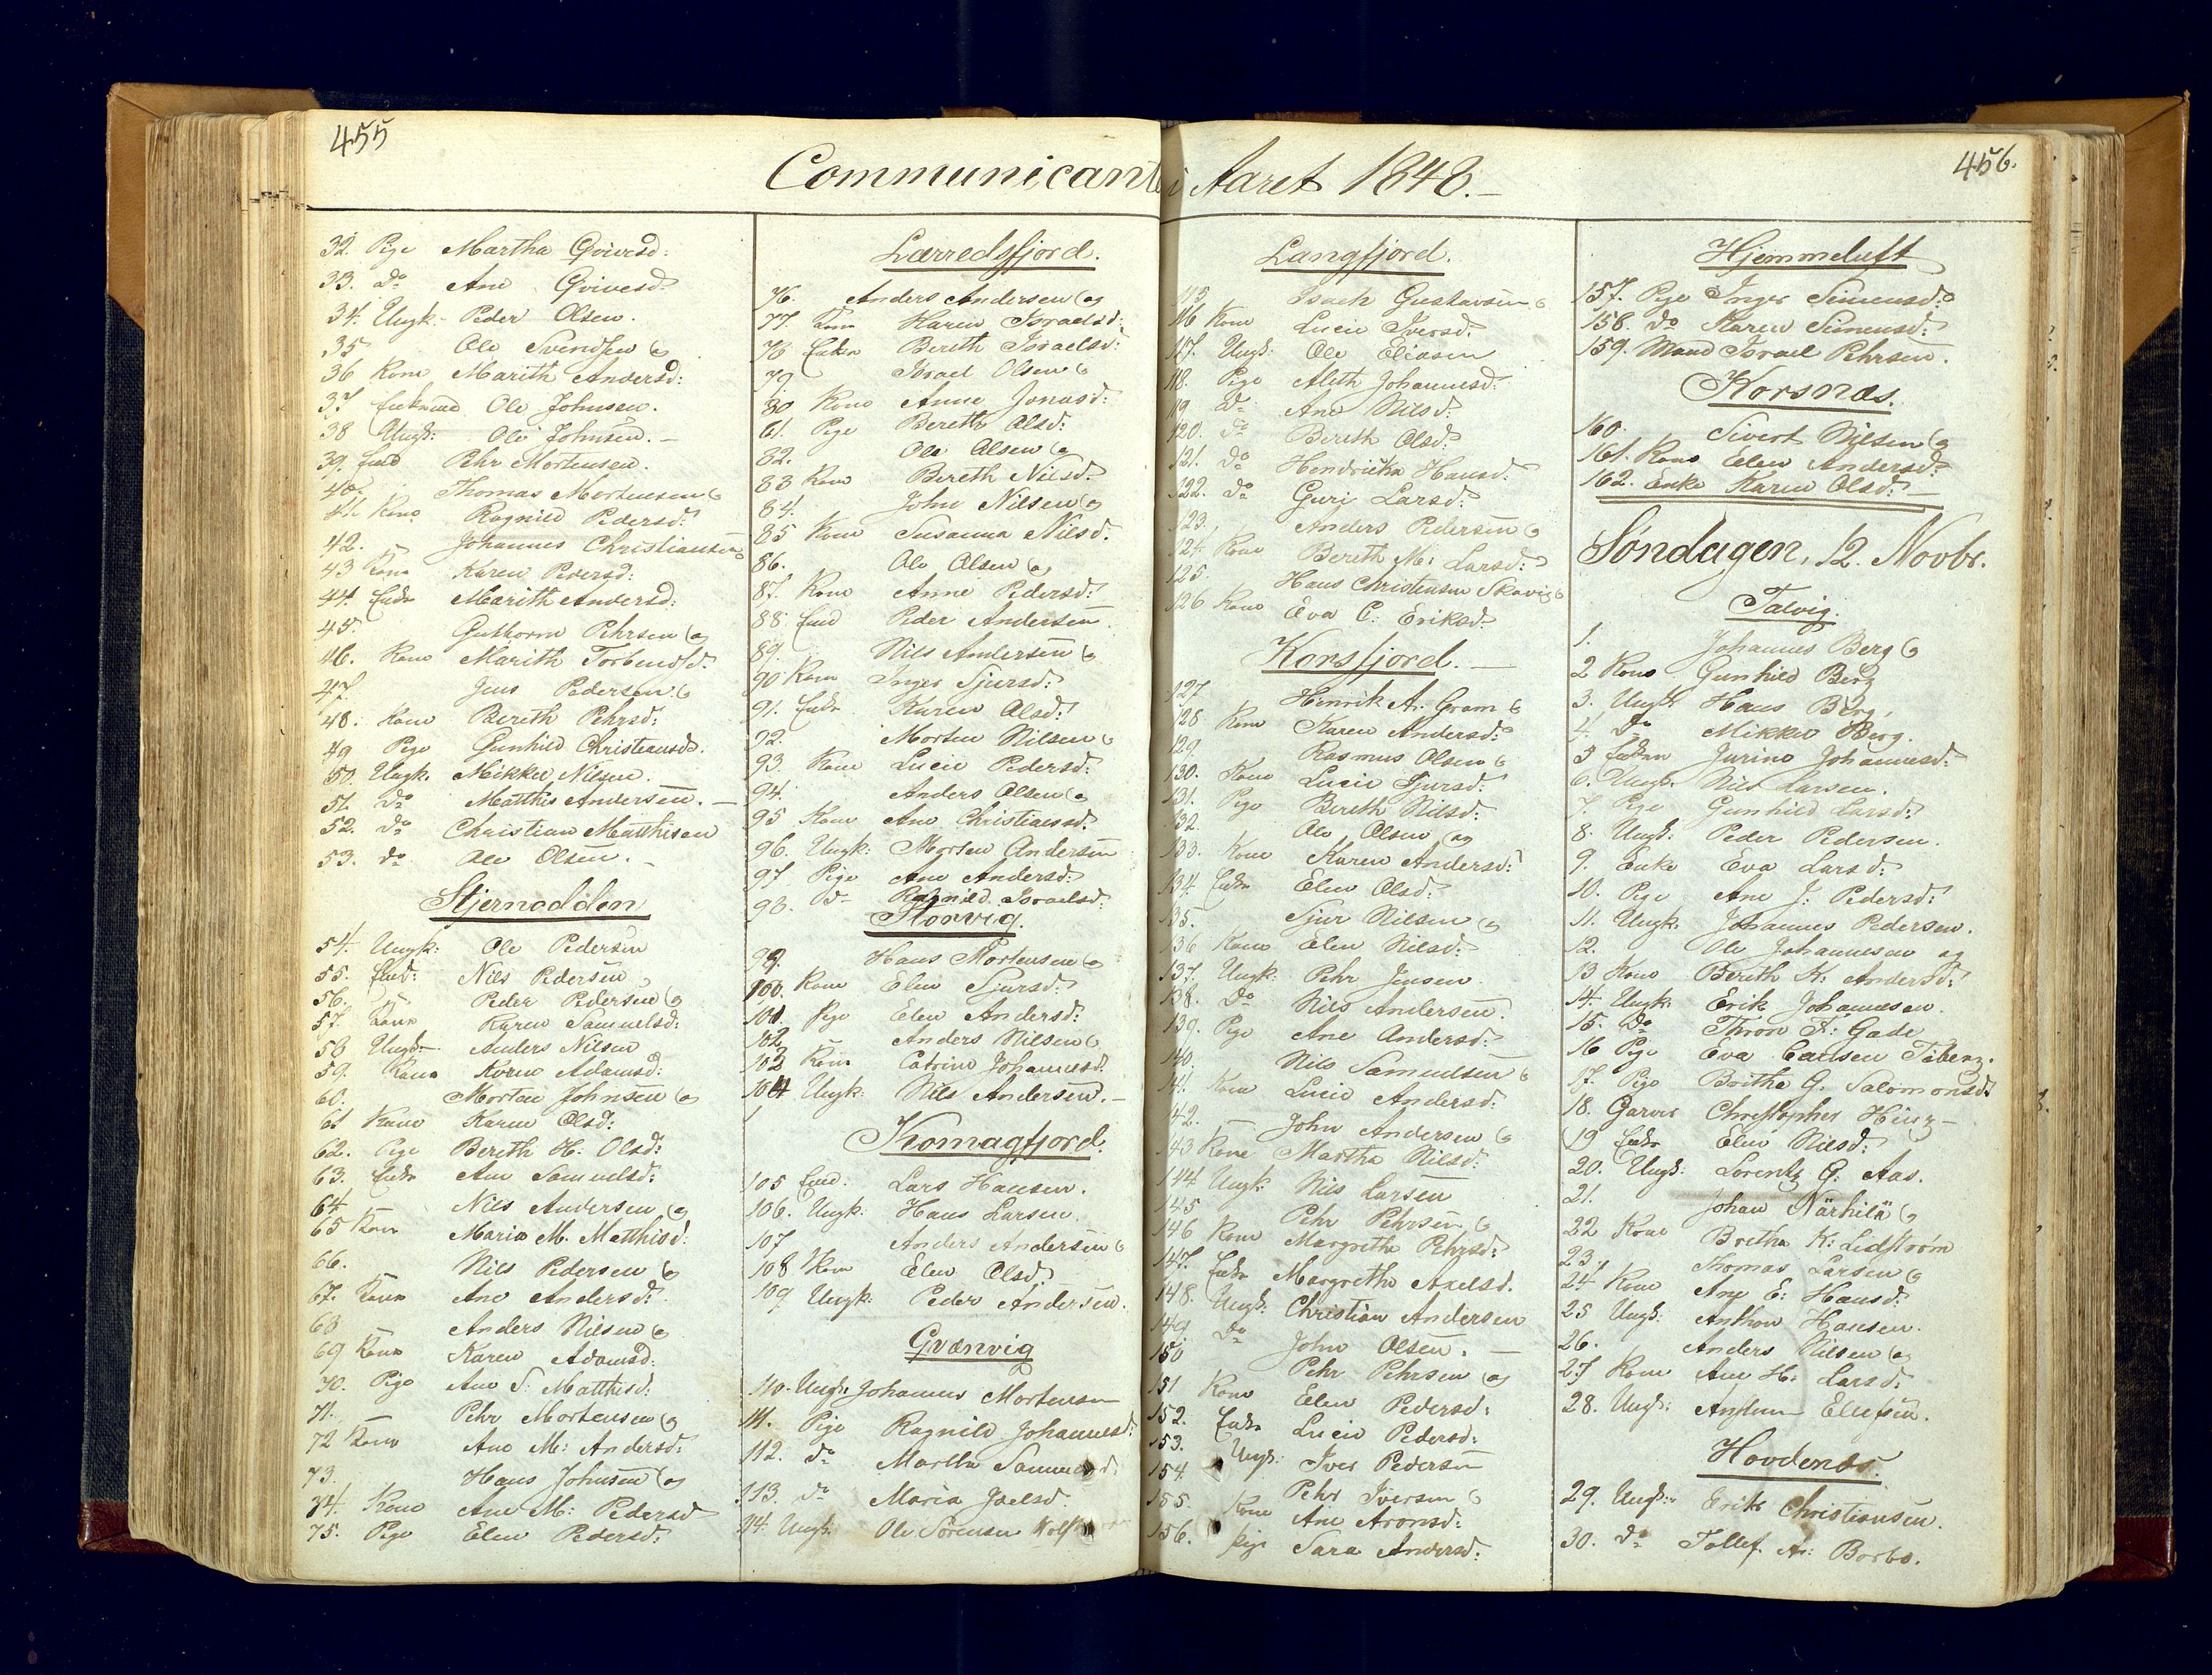 455
Communicanter i Aaret 1848.
456.
32. Pige Martha Qvivesd:
33. do Ane Qvivesd:
34. Ungk: Peder Olsen.
35 Ole Svendsen og
36 Kone Marith Andersd:
37 Enkmd Ole Johnsen.
38 Ungk: Ole Johnsen.
39. Pehr Mortensen.
40. Thomas Mortensen og
41. Kone Ragnild Pedersd:
42. Johannes Christiansen og
43 Kone Karen Pedersd:
44. Enke Marith Andersd:
45. Guthorm Pehrsen og
46. Kone Marith Torbendsd:
47. Jens Pedersen og
48. Kone Bereth Pehrsd:
49 Pige Gunhild Christiansd.
50. Ungk. Mikkel Nilsen.
51. do Matthis Andersen.
52. do Christian Matthisen
53. do Ole Olsen.
Stjernodden
54. Ungk: Ole Pedersen
55. Nils Pedersen
56. Peder Pedersen og
57. Kone Karen Samuelsd:
58 Ungk: Anders Nilsen
59. Kone Karen Adamsd:
60. Morten Johnsen og
61 Kone Karen Olsd:
62. Pige Bereth H: Olsd:
63. Enke Ane Samuelsd:
64. Nils Andersen og
65 Kone Maria M. Matthisd:
66. Nils Pedersen og
67. Kone Ane Andersd:
68 Anders Nilsen og
69 Kone Karen Adamsd:
70. Pige Ane S: Matthisd:
71. Pehr Mortensen og
72 Kone Ane M: Andersd:
73. Hans Johnsen og
74. Kone Ane M: Pedersd
75. Pige Elen Pedersd:
Lærredsfjord.
76. Anders Andersen og
77. Kone Karen Israelsd:
78 Enke Bereth Israelsd:
79 Israel Olsen og
80 Kone Anne Jonasd:
81. Pige Bereth Olsd:
82. Ole Olsen og
83 Kone Bereth Nilsd:
84. John Nilsen og
85 Kone Susanna Nilsd.
86. Ole Olsen og
87. Kone Anne Pedersd:
88. Peder Andersen
89. Nils Andersen og
90 Kone Inger Sjursd:
91. Enke Karen Olsd:
92. Morten Nilsen og
93. Kone Lucie Pedersd:
94. Anders Olsen og
95 Kone Ane Christiansd:
96. Ungk: Morten Andersen
97 Pige Ane Andersd:
98. do Ragnild Israelsd:
Storvig.
99. Hans Mortensen og
100. Kone Elen Sjursd:
101. Pige Elen Andersd:
102 Anders Nilsen og
103 Kone Catrine Johannesd.
104 Ungk: Nils Andersen.
Komagfjord.
105 Lars Hansen.
106. Ungk: Hans Larsen.
107 Anders Andersen og
108 Kone Elen Olsd:
109 Ungk: Peder Andersen.
Qvænvig
110. Ungk: Johannes Mortensen
111. Pige Ragnild Johannesd:
112. do Martha
113. do Maria Joelsd.
114. Ungk: Ole Sørensen
Langfjord.
115. Isach Gustavsen og
116 Kone Lucie Iversd:
117. Ungk: Ole Eliasen
118. Pige Aleth Johannesd:
119 do Ane Nilsd:
120. do Bereth Olsd:
121. do Hendricka Hansd:
122. do Guri Larsd:
123. Anders Pedersen og
124. Kone Bereth M: Larsd:
125. Hans Christensen Skavig og
126 Kone Eva C: Eriksd:
Korsfjord.
127 Henrik A. Gram og
128. Kone Karen Andersd:
129 Rasmus Olsen og
130. Kone Lucie Sjursd:
131. Pige Bereth Nilsd:
132 Ole Olsen og
133. Kone Karen Andersd:
134 Enke Elen Olsd:
135. Sjur Nilsen og
136 Kone Elen Nilsd:
137. Ungk: Pehr Jensen
138. do Nils Andersen.
139. Pige Ane Andersd:
140. Nils Samuelsen og
141. Kone Lucie Andersd:
142. John Andersen og
143 Kone Martha Nilsd:
144 Ungk: Nils Larsen
145 Pehr Pehrsen og
146 Kone Margretha Pehrsd:
147. Enke Margretha Axelsd.
148. Ungk: Christian Andersen
149. do John Olsen.
150 Pehr Pehrsen og
151 Kone Elen Pedersd:
152. Enke Lucie Pedersd:
153. Ungk: Iver Pedersen
154. Pehr Iversen og
155. Kone Ane Aronsd:
156. Pige Sara Andersd:
Hjemmeluft
157. Pige Inger Simensd:
158. do Karen Simensd:
159. Mand Israel Pehrsen.
Korsnæs.
160. Sivert Nilsen og
161. Kone Elen Andersd:
162. Enke Karen Olsd:
Søndagen, 12. Novbr.
Talvig.
1. Johannes Berg og
2 Kone Gunhild Berg
3. Ungk: Hans Berg.
4. do Mikkel Berg.
5 Enken Jurine Johannesd:
6. Ungk. Nils Larsen.
7. Pige Gunhild Larsd:
8. Ungk: Peder Pedersen.
9. Enke Eva Larsd:
10. Pige Ane J: Pedersd:
11. Ungk. Johannes Pedersen.
12. Ole Johannesen og
13 Kone Bereth K: Andersd:
14. Ungk: Erik Johannesen
15. do Thron F: Gade
16 Pige Eva Carlsen Taberg.
17. Pige Britha G. Salomonsd:
18. Garver Christopher
19 Enke Elen Nilsd:
20. Ungk: Lorentz G: Aas.
21. Johan Närhilä og
22 Kone Bretha K: Lidstrøm
23. Thomas Larsen og
24 Kone Ane E: Hansd:
25 Ungk: Anthon Hansen.
26. Anders Nilsen og
27 Kone Ane H: Larsd:
28. Ungk: Ellefsen.
Hovdenæs.
29. Ungk: Erik Christiansen.
30. do Tollef. A: Borbo.